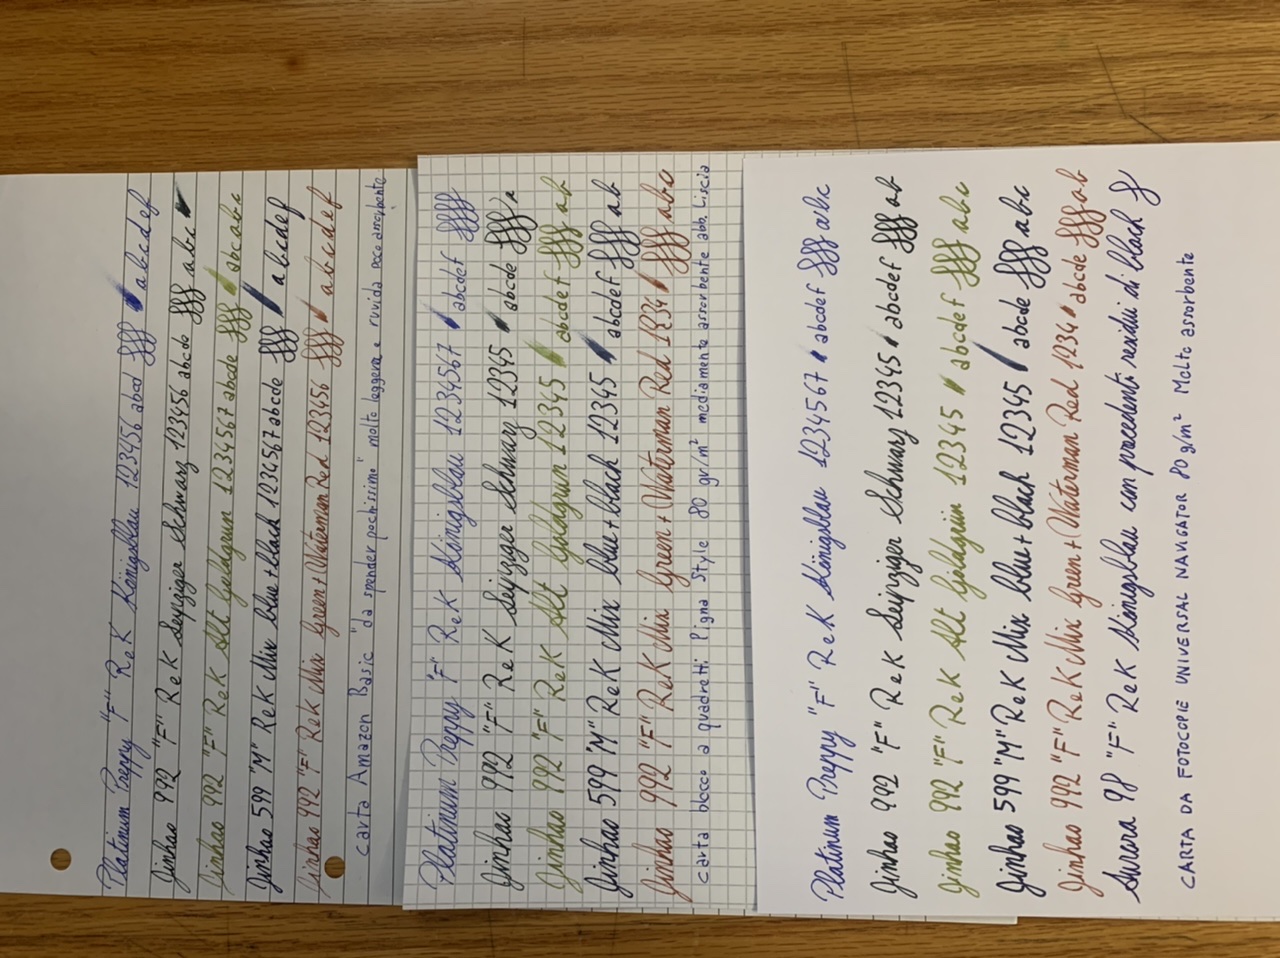 Platinum Preppy "F" ReK Königsblau 123456 abcd fff abcdef
Jinhao 992 "F" ReK Leipziger Schwarz 123456 abcde fff abc
Jinhao 992 "F" ReK Alt Goldgrun 1234567 abcde fff abcde
Jinhao 599 "M" ReK Mix blue+black 1234567 abcde fff abcdef
Jinhao 992 "F" ReK Mix Green+Waterman Red 123456 fff abcdef
carta Amazon Basic "da spender pochissimo" molto leggera e ruvida poco assorbente
Platinum Preppy "F" ReK Königsblau 1234567 abcdef ffff
Jinhao 992 "F" ReK Leipziger Schwarz 12345 abcde fff a
Jinhao 992 "F" ReK Alt Goldgrun 12345 abcdef fff ab
Jinhao 599 "M" ReK Mix blue+black 12345 abcdef fff ab
Jinhao 992 "F" ReK Mix Green+Waterman Red 1234 fff abc
carta blocco a quadretti Pigna Style 80 gr/m² mediamente assorbente abb. liscia
Platinum Preppy "F" ReK Königsblau 1234567 abcdef fff abc
Jinhao 992 "F" ReK Leipziger Schwarz 12345 abcdef fff ab
Jinhao 992 "F" ReK Alt Goldgrün 12345 abcdef fff abc
Jinhao 599 "M" ReK Mix blue+black 12345 abcde fff abc
Jinhao 992 "F" ReK Mix Green+Waterman Red 1234 abcde fff ab
Aurora 98 "F" ReK Königsblau con precedenti residui di black f
CARTA DA FOTOCOPIE UNIVERSAL NAVIGATOR 80 g/m² Molto assorbente